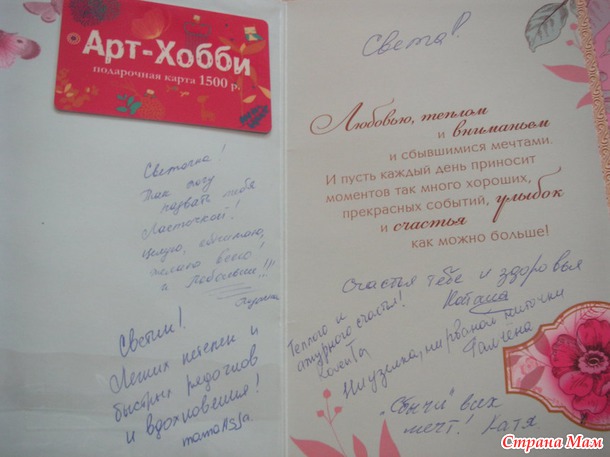 Арт-Хобби
подарочная карта 1500 р.
Светочка!
Так хочу
назвать тебя
Ласточкой!
Целую, обнимаю,
желаю всего!
а Любовь!!!
Светик!
Легких петелек и
быстрых рядочков
и вдохновения!
mamaASSa.
Света!
Любовью, теплом
и вниманьем
и сбывшимися мечтами.
И пусть каждый день приносит
моментов так много хороших,
прекрасных событий, улыбок
и счастья
как можно больше!
Счастья тебе и здоровья
Наташа
Теплого и
ажурного счастья!
Ни узелка, ни рваной ниточки
Галчёна
"Сбычи" всех
мечт! Катя.
Страна Мам